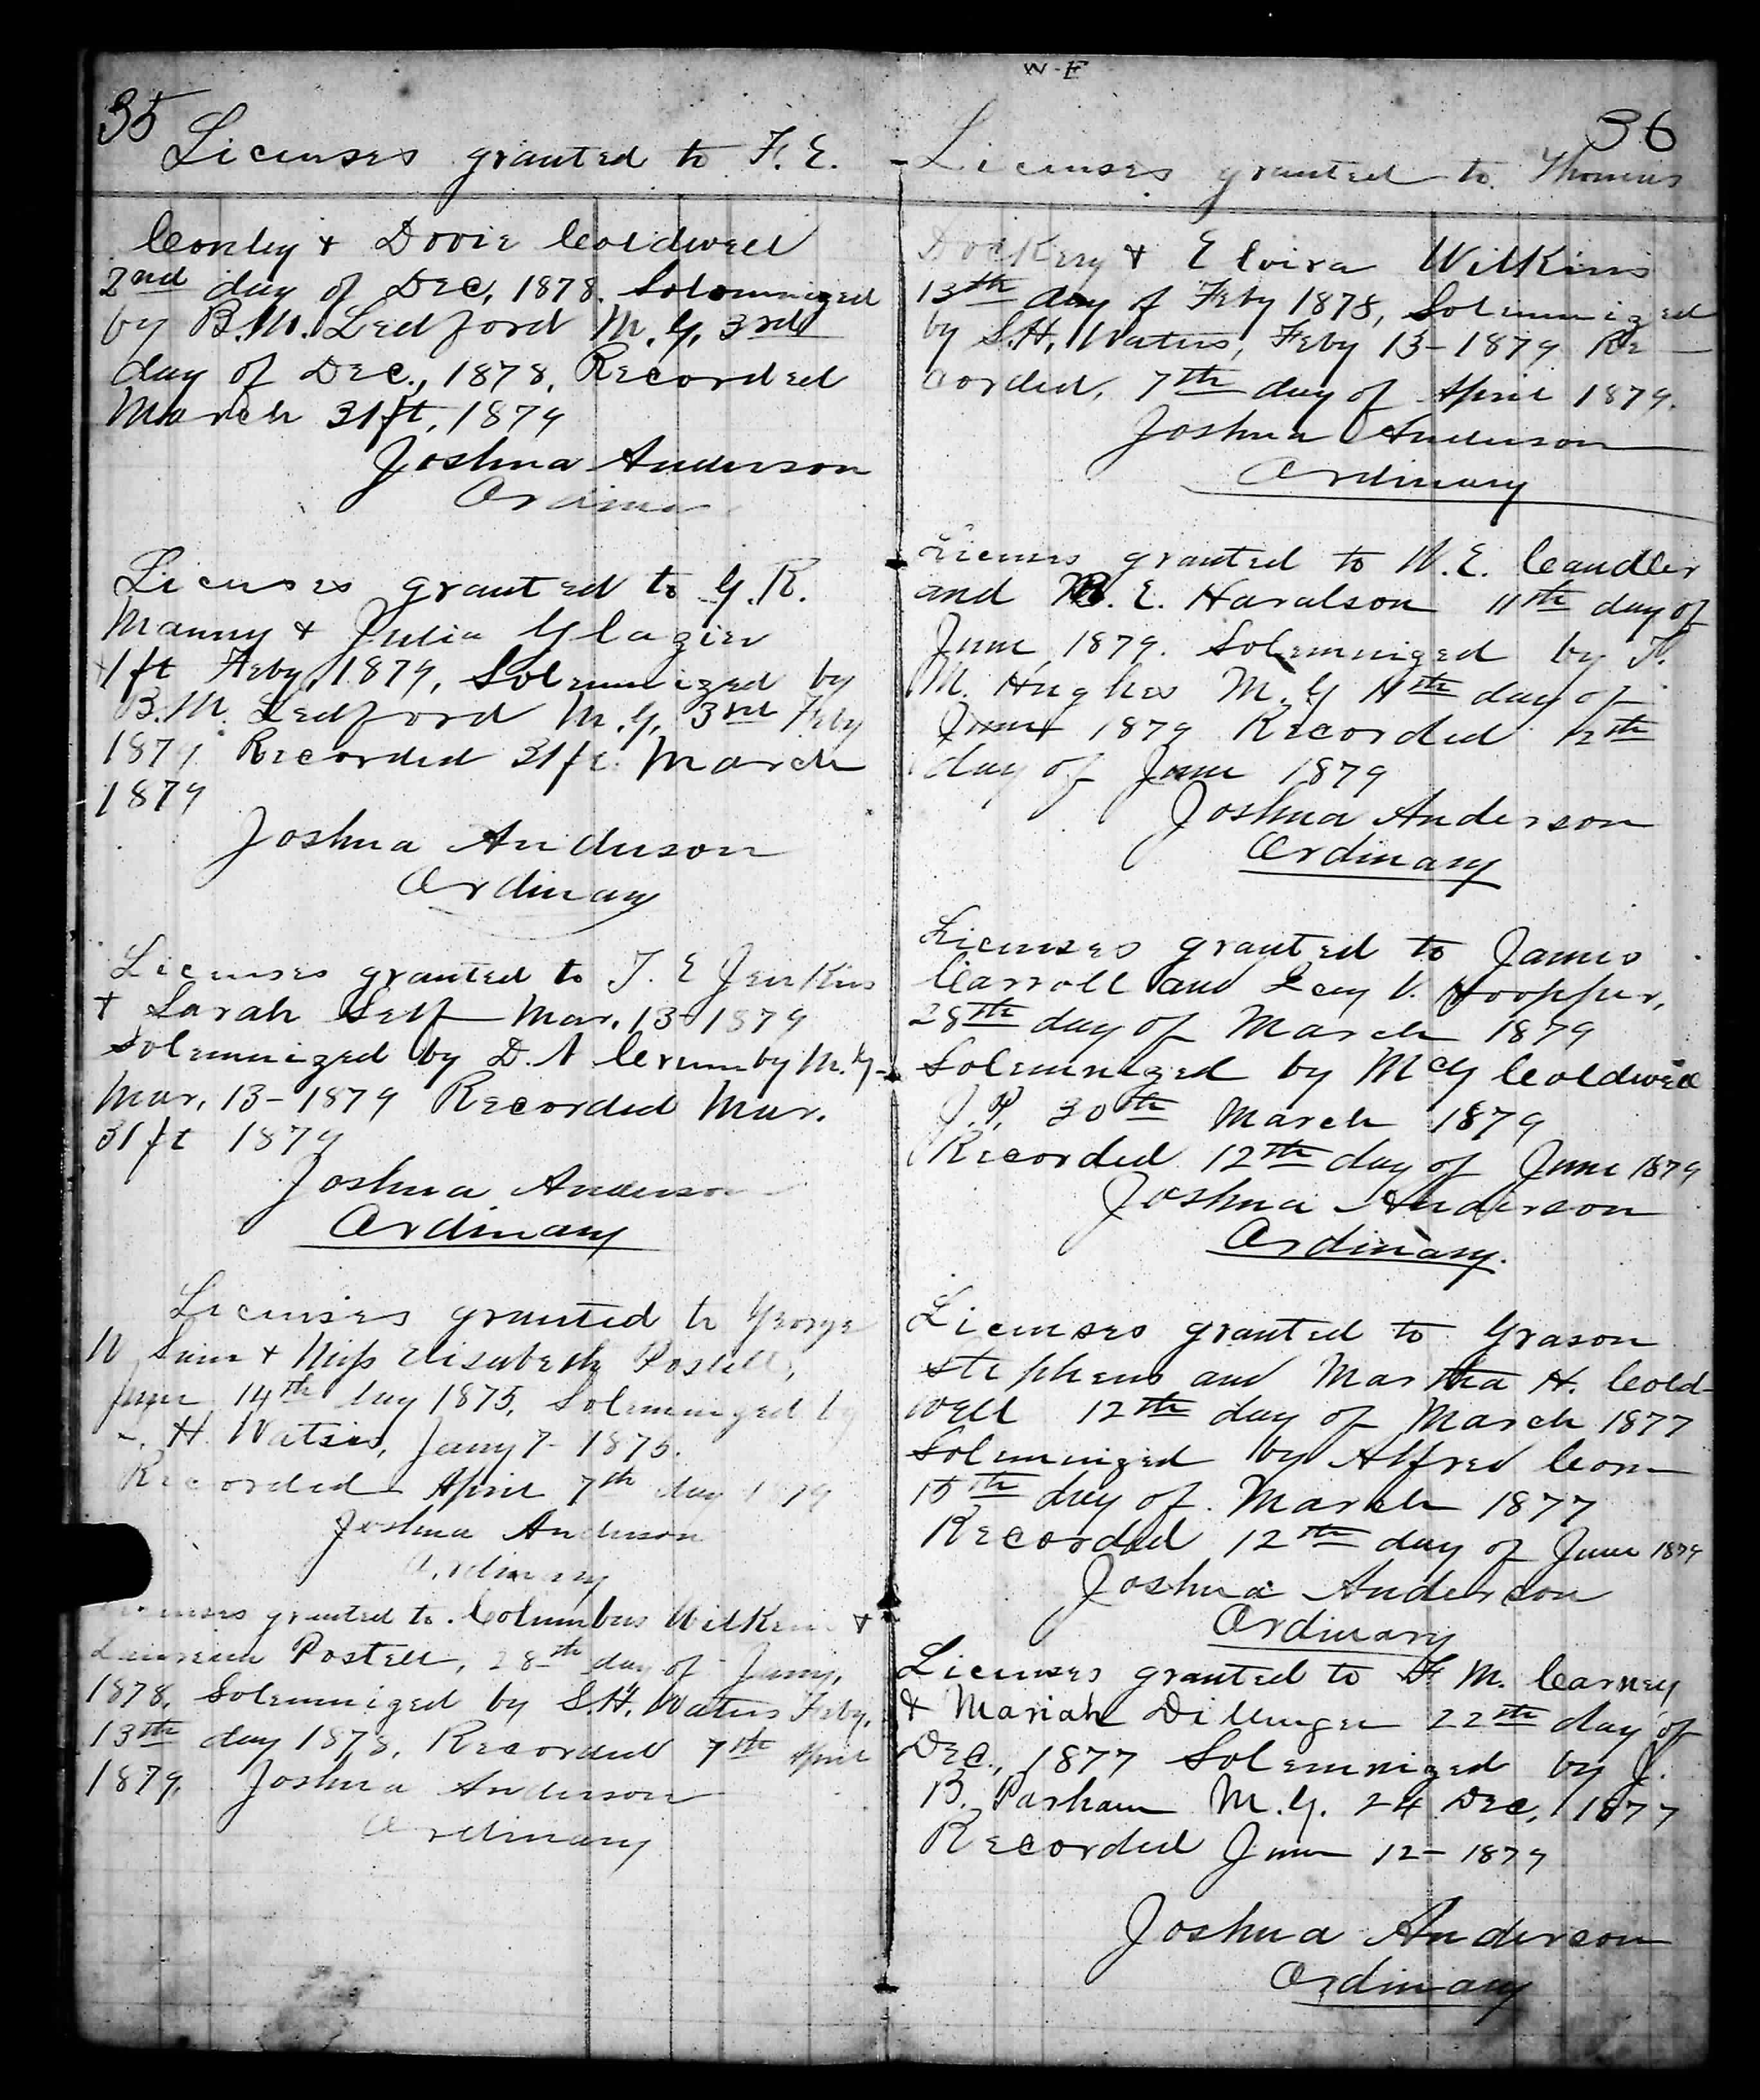 35
Licenses granted to F. E.
Conley & Dovie Coldwell
2nd day of Dec, 1878. Solomnized
by B. M. Ledford M. G. 3rd
day of Dec., 1878, Recorded
March 31st, 1879
Joshua Anderson
Licenses granted to G. R.
Manny & Julia Glazier
1st Feby, 1879, Solemnized by
B. M. Ledford M. G. 3rd Feby
1879 Recorded 31st. March
1879
Joshua Anderson
Ordinary
Licenses granted to T. E Jenkins
& Sarah Self Mar. 13 1879
Solemnized by D. N Crumby M. G.
Mar, 13 - 1879 Recorded Mar.
31st 1879
Joshua Anderson
Ordinary
Licenses granted to George
W & Miss Elisabeth Postell,
14th day 1875, Solemnized by
H. Waters, Jany 7 - 1875.
Recorded April 7th day 1879
Joshua Anderson
Ordinary
Licenses granted to Columbus Wilkins &
Postell, 28th day of Jany,
1878, Solemnized by S. H. Waters Feby,
13th day 1878, Recorded 7th April
1879, Joshua Anderson
Ordinary
W-F
36
Licenses granted to Thomas
Dockery & Elvira Wilkins
13th day of Feby 1878, Solemnized
by S. H. Waters, Feby 13 - 1879 Re
corded, 7th day of April 1879.
Joshua Anderson
Ordinary
Licenses granted to W. E. Candler
and E. Haralson 11th day of
June, 1879. Solemnized by T.
M. Hughes M. G 11th day of
June 1879 Recorded 12th
day of June 1879
Joshua Anderson
Ordinary
Licenses granted to James
Carroll and Lecy V. Hoopper,
28th day of March 1879
Solemnized by McG Coldwell
J. P. 30th March 1879
Recorded 12th day of June 1879
Joshua Anderson
Ordinary.
Licenses granted to Grason
Stephens and Martha H. Cold-
well 12th day of March 1877
Solemnized by Alfred Corn
15th day of March 1877
Recorded 12th day of June 1879
Joshua Anderson
Ordinary
Licenses granted to F. M. Carney
& Mariah Dillinger 22th day of
Dec., 1877 Solemnized by J.
B. Parham M. G. 24 Dec, 1877
Recorded June 12 - 1879
Joshua Anderson
Ordinary